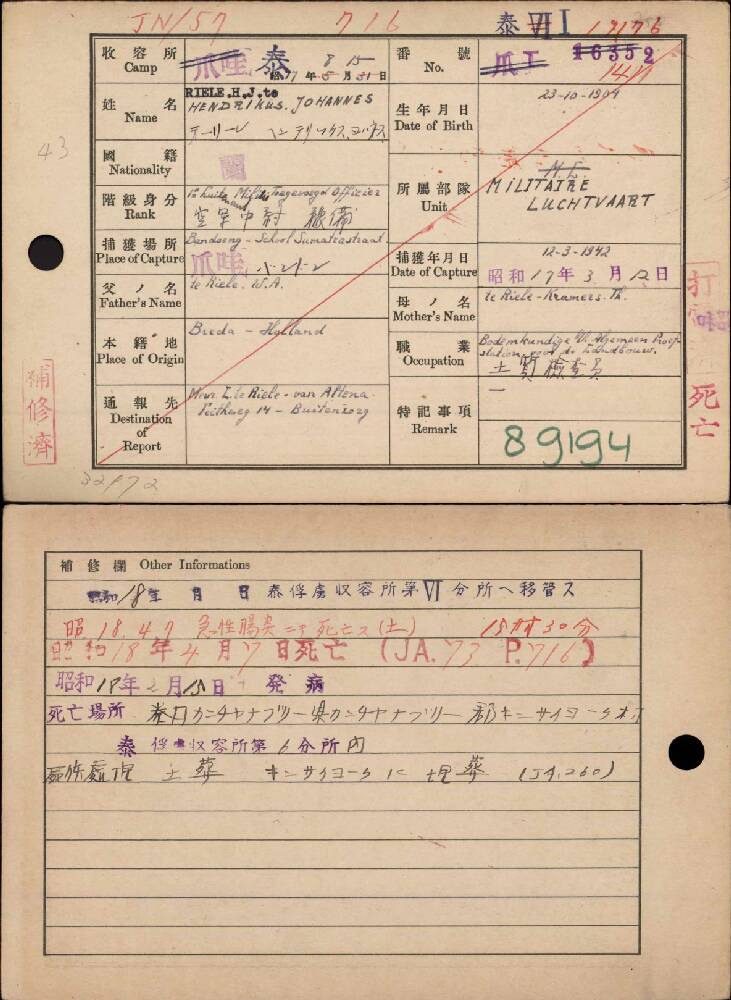 JN/57
716
泰 VII I 17176
收容所
Camp
爪哇 泰
8 15
昭和17年5月31日
番號
No.
爪I 16352
姓名
Name
RIELE.H.J.te
HENDRIKUS. JOHANNES
生年月日
Date of Birth
23-10-1904
43
國籍
Nationality
蘭
階級身分
Rank
空軍中尉
所屬部隊
Unit
M.L.
MILITAIRE
LUCHTVAART
捕獲場所
Place of Capture
Bandoeng - School Sumatrastraat
爪哇
捕獲年月日
Date of Capture
12-3-1942
昭和17年3月12日
父ノ名
Father's Name
te Riele. W.A.
母ノ名
Mother's Name
te Riele-Kramers. Th.
本籍地
Place of Origin
Breda - Holland
職業
Occupation
Bodemkundige Alg. Algemeen Proef-
station voor de Landbouw.
土質檢查員
通報先
Destination
of
Report
Mevr. Z. te Riele - van Altena.
14 - Buitenzorg
特記事項
Remark
一
89194
補修濟
死亡
補修欄 Other Informations
昭和18年 月 日 泰俘虜収容所第VI分所ヘ移管ス
昭18.4.7 急性腸炎ニテ死亡ス(土) 15時30分
昭和18年4月7日死亡 (JA.73 P.716)
昭和18年2月15日 発病
死亡場所 泰国カンチヤナブリー県カンチヤナブリー郡キンサイヨーク村
泰俘虜収容所第6分所内
屍体處理 土葬 キンサイヨークに埋葬 (JA.260)